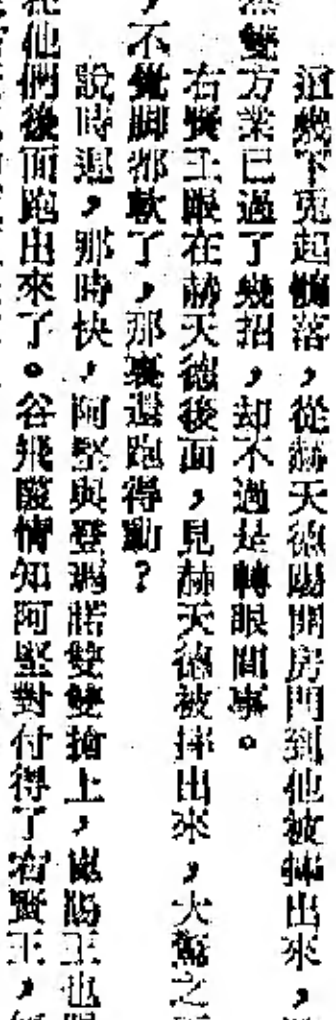 這幾下兎起鶻落，從赫天德踢開房門到他被摔出來，
然雙方業已過了幾招，却不過是轉眼間事。
右賢王跟在赫天德後面，見赫天德被摔出來，大驚之
，不覺脚都軟了，那裏還跑得動？
說時遲，那時快，阿堅與登瑪諾雙雙搶上，
他們後面跑出來了。谷飛霞情知阿堅對付得了右賢王，